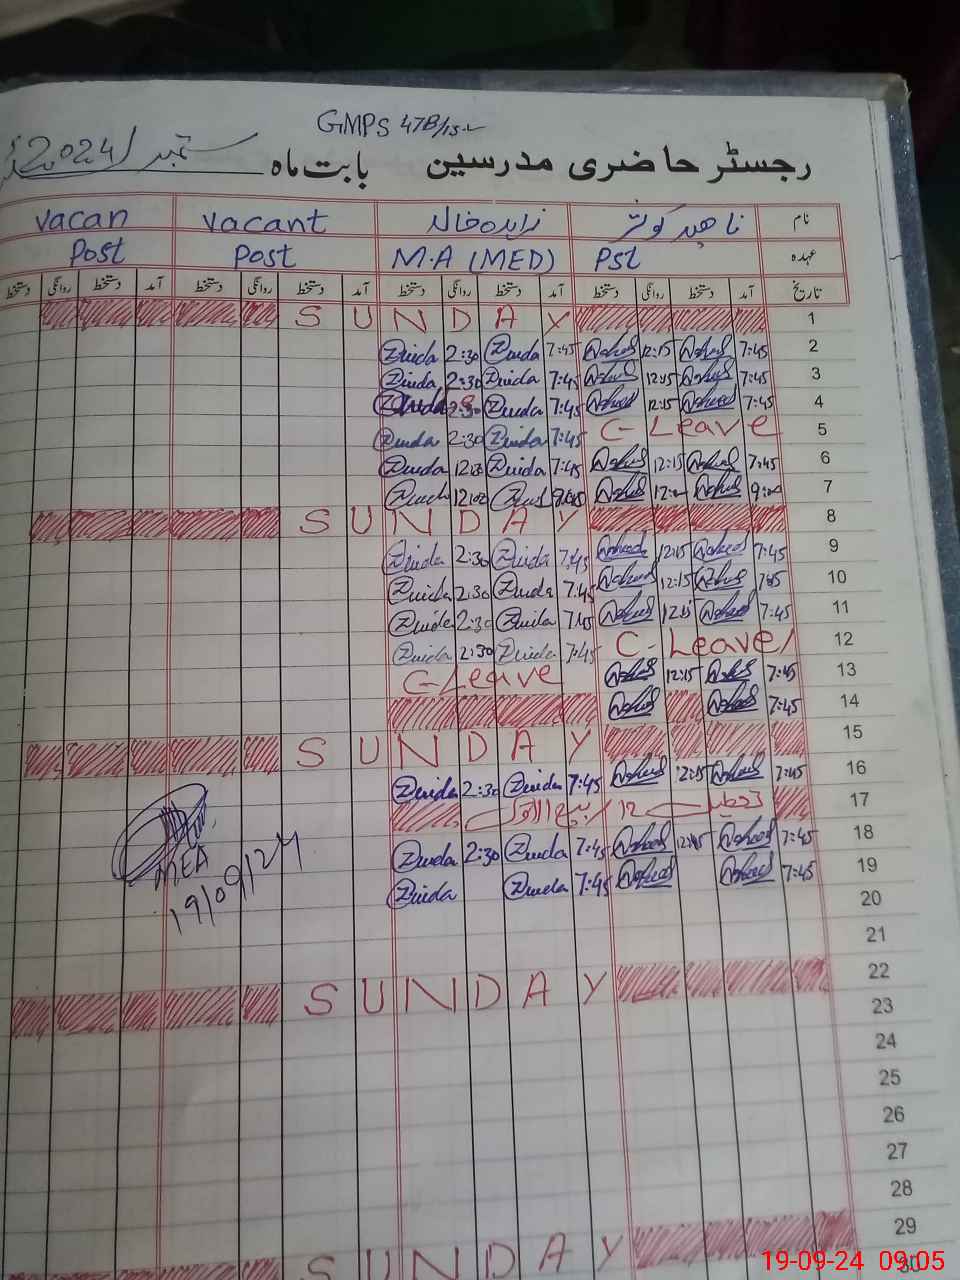 GMPS 47B/15-L
رجسٹر حاضری مدرسین بابت ماہ ستمبر 2024ء
نام ناہید کوثر زاہدہ خالد vacant vacan
عہدہ Pst M.A (MED) Post Post
تاریخ آمد دستخط روانگی دستخط آمد دستخط روانگی دستخط آمد دستخط روانگی دستخط آمد دستخط روانگی دستخط
SUNDAY 1
Zuida 2:30 Zuida 7:45 Naheed 12:15 Naheed 7:45 2
Zuida 2:30 Zuida 7:45 Naheed 12:15 Naheed 7:45 3
Zuida 2:30 Zuida 7:45 Naheed 12:15 Naheed 7:45 4
Zuida 2:30 Zuida 7:45 C-Leave 5
Zuida Zuida 7:45 Naheed 12:15 Naheed 7:45 6
Zuida 12:00 Zuida Naheed Naheed 9:00 7
SUNDAY 8
Zuida 2:30 Zuida 7:45 Naheed 12:15 Naheed 7:45 9
Zuida 2:30 Zuida 7:45 Naheed 12:15 Naheed 7:45 10
Zuida 2:30 Zuida 7:45 Naheed 12:15 Naheed 7:45 11
Zuida 2:30 Zuida 7:45 C-Leave 12
C-Leave Naheed 12:15 Naheed 7:45 13
Naheed Naheed 7:45 14
SUNDAY 15
Zuida 2:30 Zuida 7:45 Naheed 12:15 Naheed 7:45 16
تعطیل 12 ربیع الاول 17
Zuida 2:30 Zuida 7:45 Naheed 12:15 Naheed 7:45 18
Zuida Zuida 7:45 Naheed Naheed 7:45 19
MEA
19/09/24
20
21
SUNDAY 22
23
24
25
26
27
28
SUNDAY 29
30
19-09-24 09:05